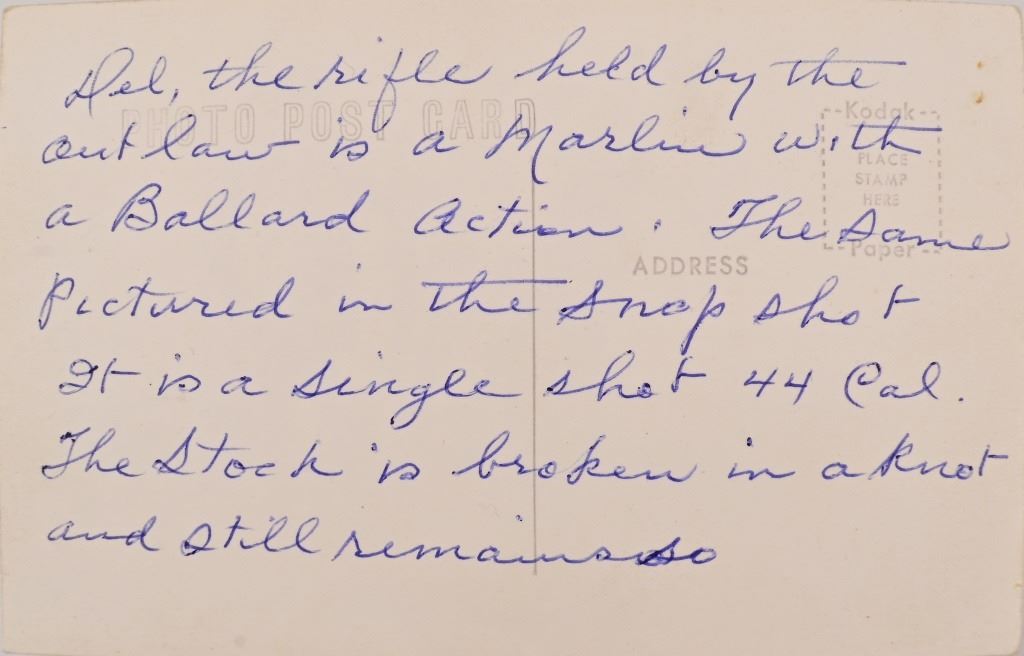 Del, the rifle held by the
PHOTO POST CARD
outlaw is a Marlin with
a Ballard Action. The Same
Pictured in the Snap shot
It is a single shot 44 Cal.
The Stock is broken in a Knot
and still remains so
Kodak
PLACE
STAMP
HERE
Paper
ADDRESS